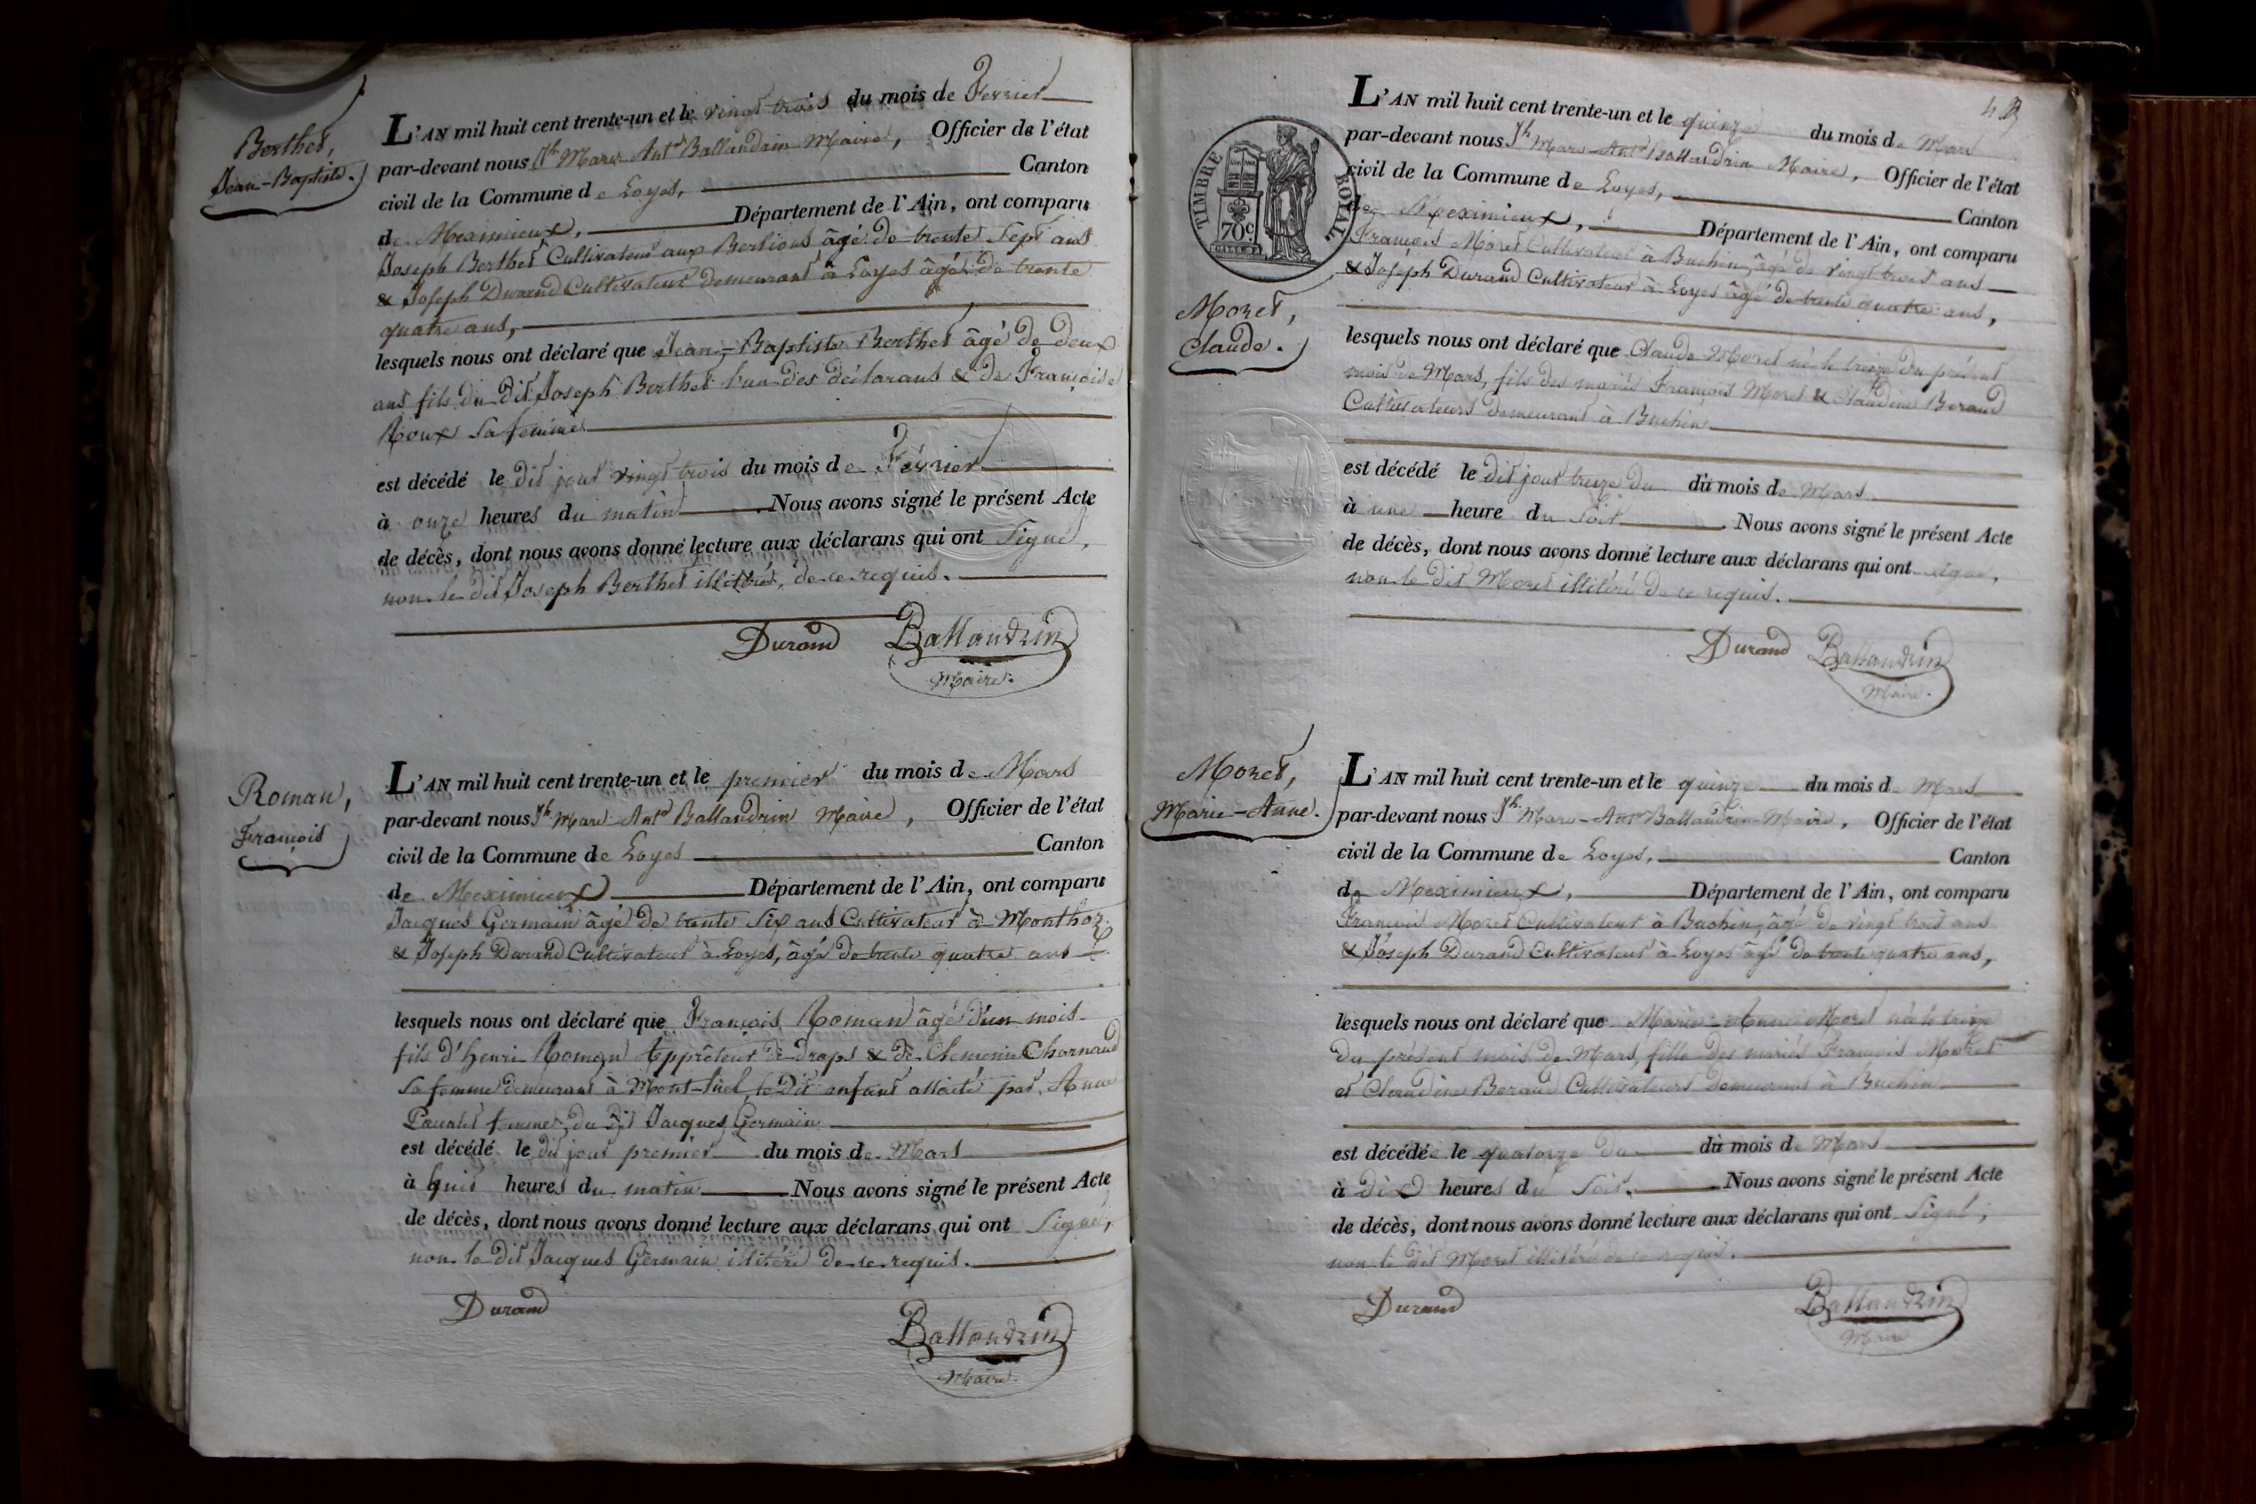 Berthet,
Jean-Baptiste.
L'AN mil huit cent trente-un et le vingt trois du mois de Février
par-devant nous Jh Marc Ante Ballandrin Maire, Officier de l'état
civil de la Commune de Loyes, Canton
de Meximieux, Département de l'Ain, ont comparu
Joseph Berthet Cultivateur aux Berlions âgé de trente Sept ans
& Joseph Durand Cultivateur demeurant à Loyes âgé de trente
quatre ans,
lesquels nous ont déclaré que Jean-Baptiste Berthet âgé de deux
ans fils du dit Joseph Berthet l'un des déclarans & de Françoise
Roux sa femme
est décédé le dit jour vingt trois du mois de Février
à onze heures du matin Nous avons signé le présent Acte
de décès, dont nous avons donné lecture aux déclarans qui ont Signé,
non le dit Joseph Berthet illitéré, de ce requis.
Durand Ballandrin
Maire.
Roman,
François
L'AN mil huit cent trente-un et le premier du mois de Mars
par-devant nous Jh Marc Ante Ballandrin Maire, Officier de l'état
civil de la Commune de Loyes Canton
de Meximieux Département de l'Ain, ont comparu
Jacques Germain âgé de trente Six ans Cultivateur à Monthoz
& Joseph Durand Cultivateur à Loyes, âgé de trente quatre ans
lesquels nous ont déclaré que François Roman âgé d'un mois
fils d'henri Roman Apprêteur de draps & de Charnaud
sa femme demeurant à Mont-luel, le dit enfant allaité par Anne
femme du dit Jacques Germain
est décédé le dit jour premier du mois de Mars
à huit heures du matin Nous avons signé le présent Acte
de décès, dont nous avons donné lecture aux déclarans qui ont Signé,
non le dit Jacques Germain illitéré de ce requis.
Durand
Ballandrin
Maire.
TIMBRE ROYAL
70c
43
Moret,
Claude.
L'AN mil huit cent trente-un et le quinze du mois de Mars
par-devant nous Jh Marc-Ante Ballandrin Maire, Officier de l'état
civil de la Commune de Loyes, Canton
de Meximieux, Département de l'Ain, ont comparu
François Moret Cultivateur à Buchin, âgé de vingt trois ans
& Joseph Durand Cultivateur à Loyes âgé de trente quatre ans,
lesquels nous ont déclaré que Claude Moret né le treize du présent
mois de Mars, fils des mariés François Moret & Claudine Beraud
Cultivateurs demeurant à Buchin
est décédé le dit jour treize du du mois de Mars
à une heure du soir Nous avons signé le présent Acte
de décès, dont nous avons donné lecture aux déclarans qui ont signé,
non le dit Moret illitéré de ce requis.
Durand Ballandrin
Maire.
Moret,
Marie-Anne.
L'AN mil huit cent trente-un et le quinze du mois de Mars
par-devant nous Jh Marc-Ante Ballandrin Maire, Officier de l'état
civil de la Commune de Loyes, Canton
de Meximieux, Département de l'Ain, ont comparu
François Moret Cultivateur à Buchin, âgé de vingt trois ans
& Joseph Durand Cultivateur à Loyes âgé de trente quatre ans,
lesquels nous ont déclaré que Marie-Anne Moret née le treize
du présent mois de Mars, fille des mariés François Moret
et Claudine Beraud Cultivateurs demeurant à Buchin
est décédée le quatorze du du mois de Mars
à dix heures du Soir. Nous avons signé le présent Acte
de décès, dont nous avons donné lecture aux déclarans qui ont Signé,
non le dit Moret illitéré de ce requis.
Durand
Ballandrin
Maire